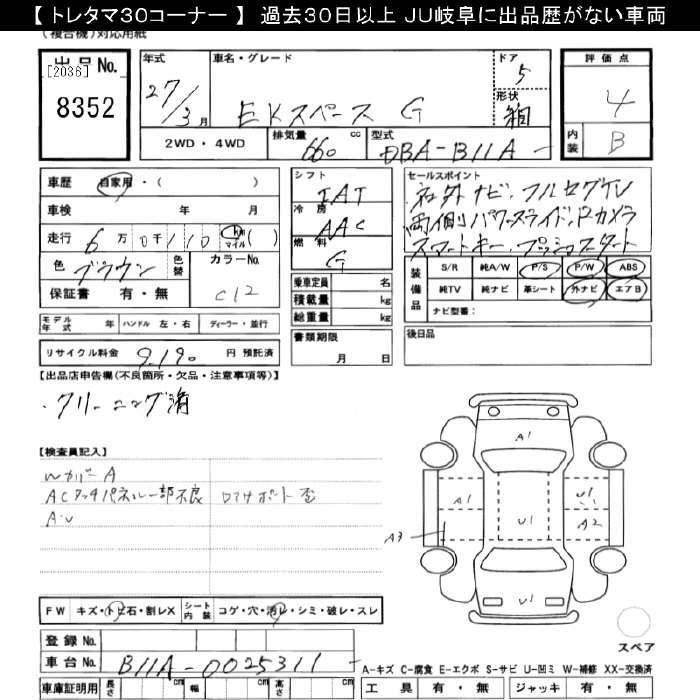 【 トレタマ30コーナー 】 過去30日以上 JU岐阜に出品歴がない車両
(複合機)対応用紙
出品No.
[2036]
8352
年式
27/3月
車名・グレード
EKスペース G
ドア
5
形状
箱
評価点
4
内装
B
2WD・4WD
排気量 660 cc
型式 DBA-B11A
車歴 自家用・( )
車検 年 月
走行 6万0千110 km マイル ( )
色 ブラウン 色替
カラーNo. C12
保証書 有・無
シフト
IAT
冷房
AAC
燃料
G
乗車定員 名
積載量 kg
総重量 kg
セールスポイント
社外ナビ、フルセグTV
両側パワースライド、Bカメラ
スマートキー、プッシュスタート
装備品
S/R 純A/W P/S P/W ABS
純TV 純ナビ 革シート 外ナビ エアB
ナビ型番:
モデル年式 年 ハンドル 左・右 ディーラー・並行
書類期限
月 日
後日品
リサイクル料金 9,190 円 預託済
【出品店申告欄(不良箇所・欠品・注意事項等)】
・クリーニング済
【検査員記入】
WカバーA
ACタッチパネル一部不良 ロアサポート歪
A・U
A1
A1
U1
U1
A2
A3
U1
FW キズ・トビ石・割レX シート内装 コゲ・穴・汚レ・シミ・破レ・スレ
スペア
登録No.
車台No. B11A-0025311
A-キズ C-腐食 E-エクボ S-サビ U-凹ミ W-補修 XX-交換済
車庫証明用 長さ cm 幅 cm 高さ cm
工具 有・無 ジャッキ 有・無